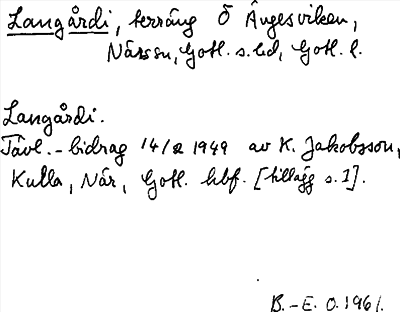 Langårdi, terräng Ö Ängesviken,
Närsn, Gotl. s. hd, Gotl. l.
Langårdi.
Tävl.-bidrag 14/2 1949 av K. Jakobsson,
Kulla, När, Gotl. hbf. [tillägg s. 1].
B.-E. O. 1961.